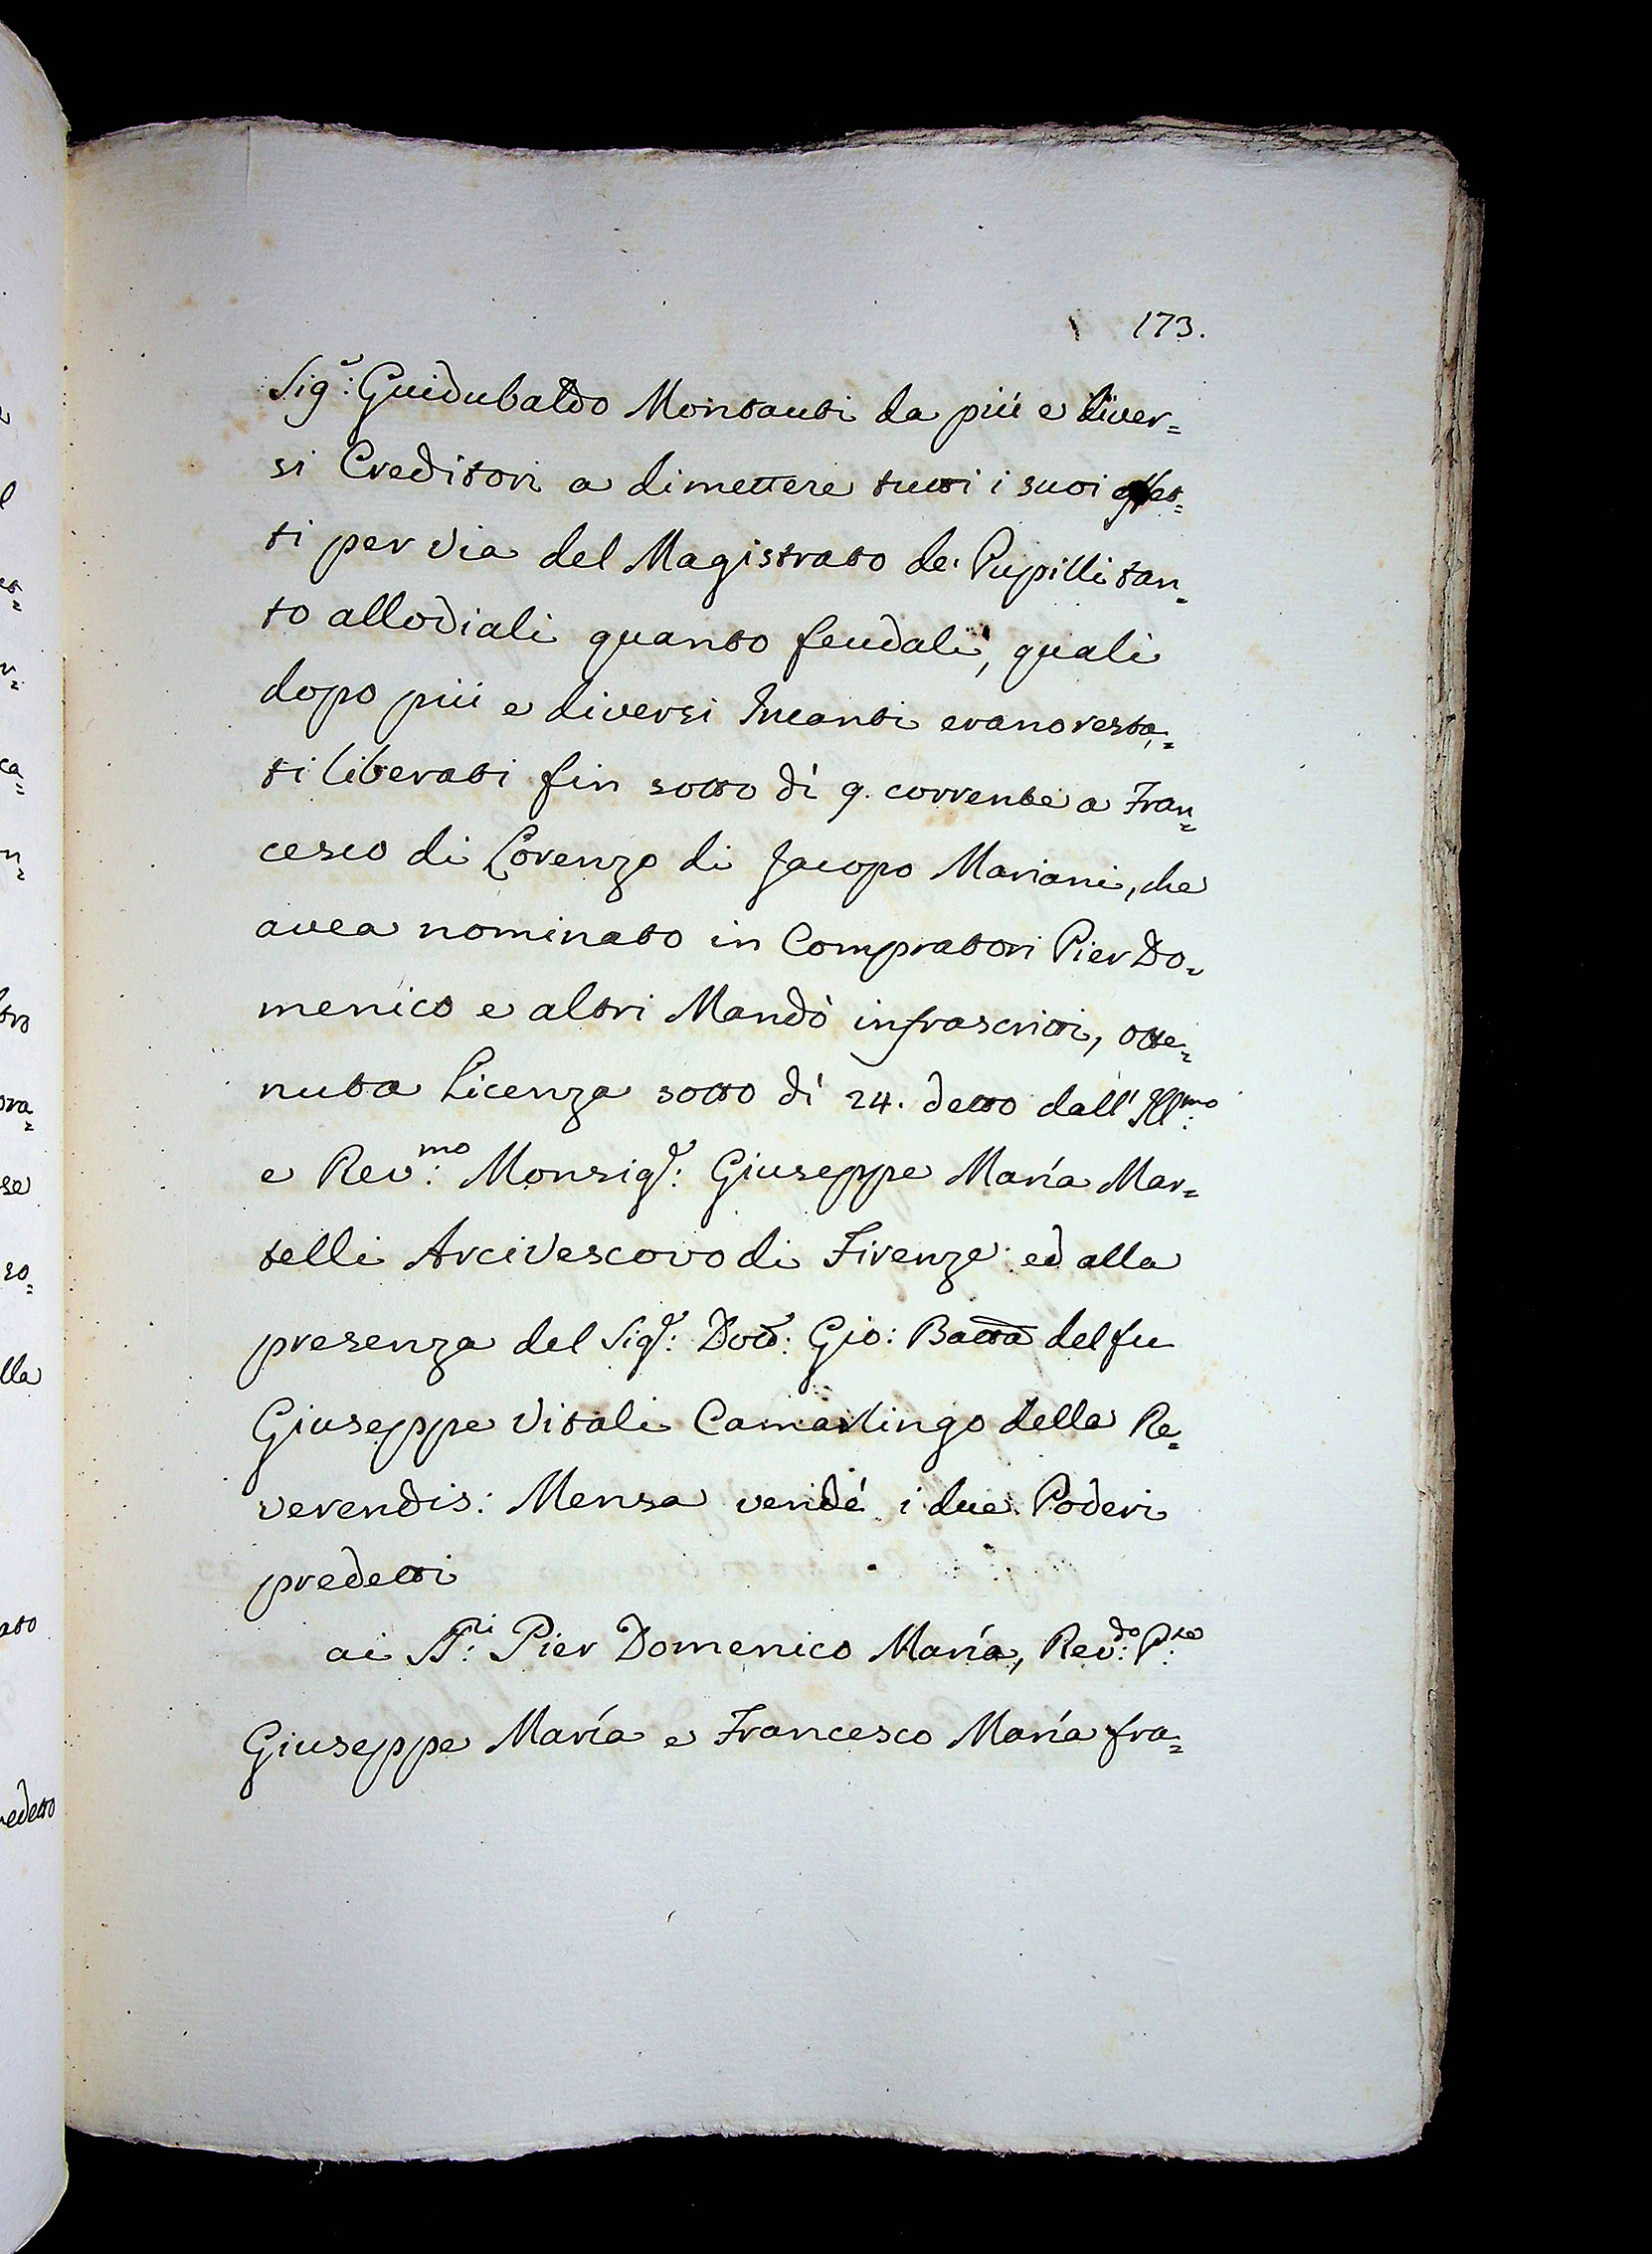 173.
Sig.r: Guidubaldo Montauti da più e diver=
si Creditori a dimettere tutti i suoi effet=
ti per via del Magistrato de' Pupilli tan=
to allodiali quanto feudali, quali
dopo più e diversi Incanti erano resta=
ti liberati fin sotto dì 9. corrente a Fran=
cesco di Lorenzo di Jacopo Mariani, che
avea nominato in Compratori Pier Do=
menico e altri Mandò infrascritti, otte=
nuta Licenza sotto dì 24. detto dall' Ill:mo
e Rev:mo Monsig.r: Giuseppe María Mar=
telli Arcivescovo di Firenze ed alla
presenza del Sig.r: Dott: Gio: Batta del fu
Giuseppe Vitali Camarlingo della Re=
verendis: Mensa vendé i due Poderi
predetti
ai SS:ri Pier Domenico María, Rev:do P:te
Giuseppe María e Francesco María fra=